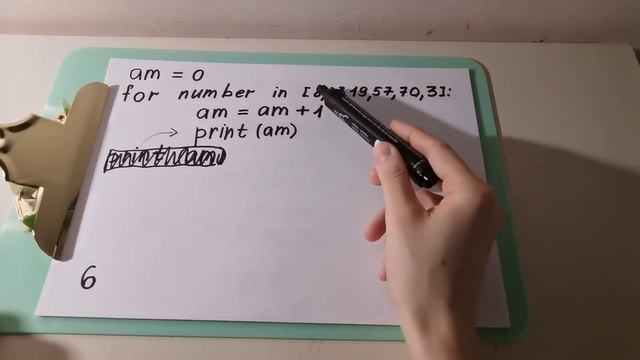 am = 0
for number in [8, 19,57,70,3]:
am = am + 1
print (am)
6